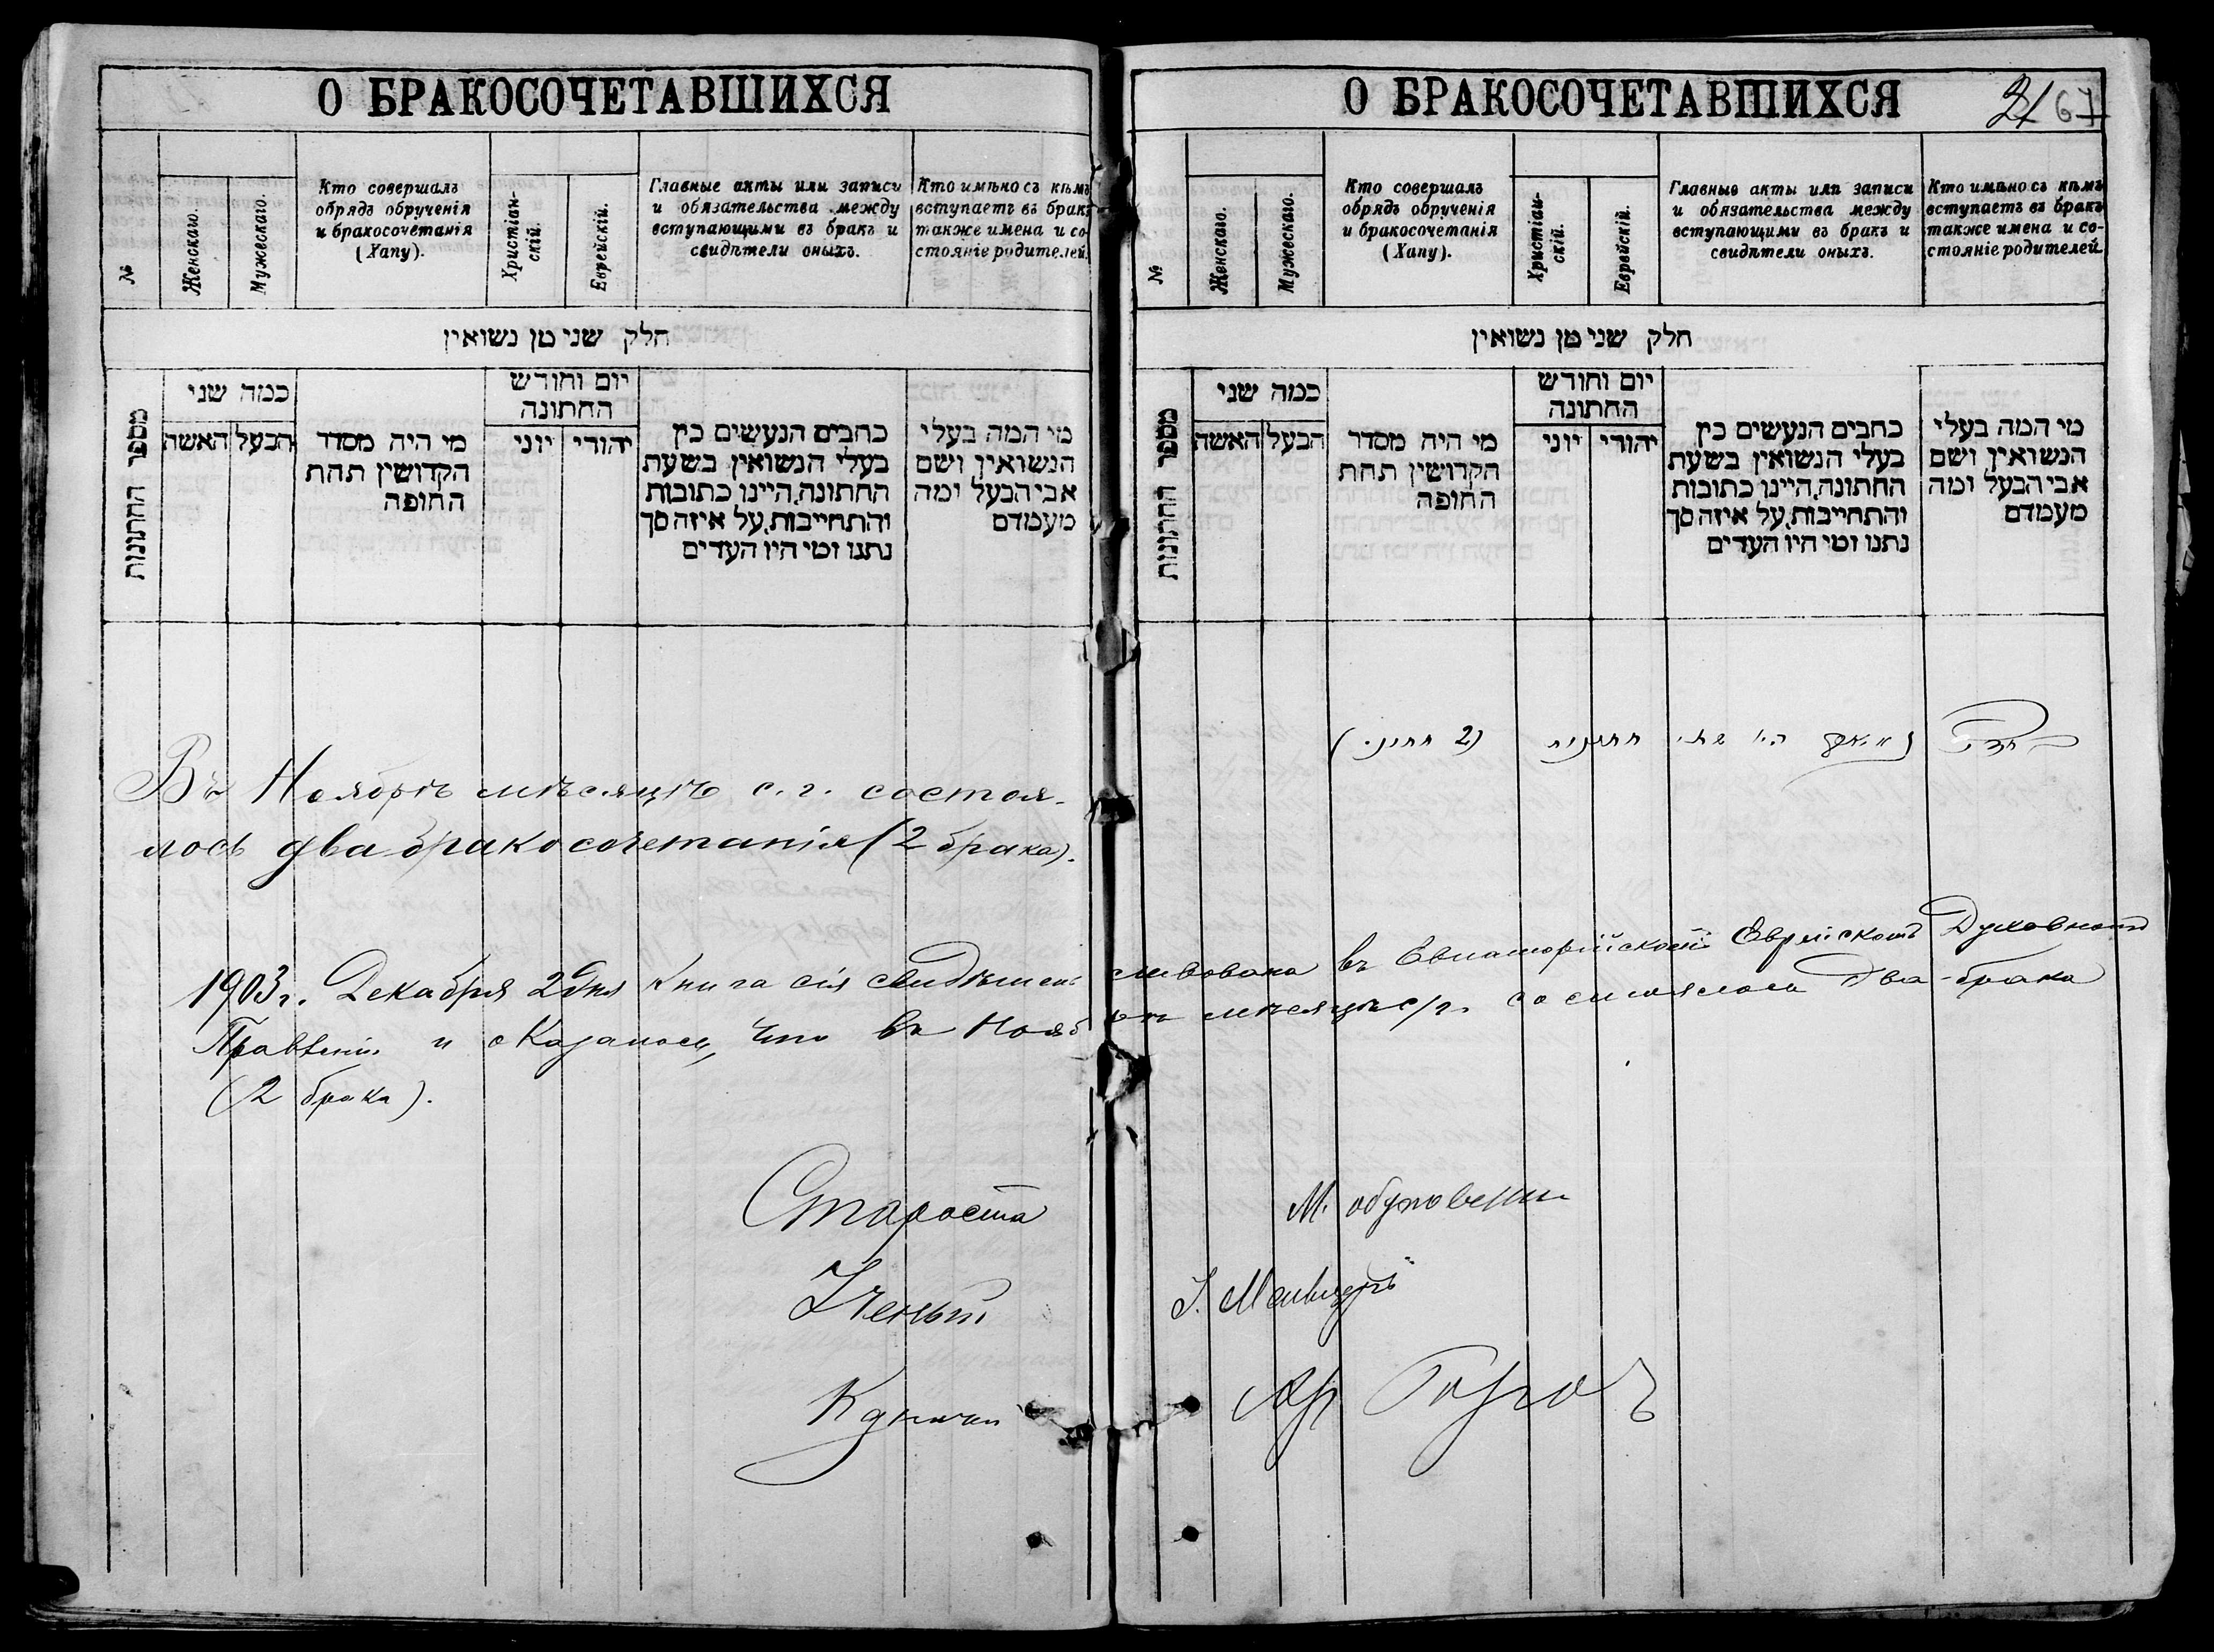 О БРАКОСОЧЕТАВШИХСЯ
№
Женскаго.
Мужескаго.
Кто совершалъ
обрядъ обрученія
и бракосочетанія
(Хапу).
Христіан-
скій.
Еврейскій.
Главные акты или записи
и обязательства между
вступающими въ бракъ и
свидѣтели оныхъ.
Кто имѣно съ кѣмъ
вступаетъ въ бракъ
также имена и со-
стояніе родителей.
חלק שני מן נשואין
מספר החתונות
כמה שני
האשה
הבעל
מי היה מסדר
הקדושין תחת
החופה
יום וחודש
החתונה
יוני
יהודי
כתבים הנעשים בין
בעלי הנשואין בשעת
החתונה, היינו כתובות
והתחייבות, על איזה סך
נתנו ומי היו העדים
מי המה בעלי
הנשואין ושם
אבי הבעל ומה
מעמדם
Въ Ноябрѣ мѣсяцѣ с. г. состоя-
лось два бракосочетанія (2 брака).
О БРАКОСОЧЕТАВШИХСЯ
21 67
№
Женскаго.
Мужескаго.
Кто совершалъ
обрядъ обрученія
и бракосочетанія
(Хапу).
Христіан-
скій.
Еврейскій.
Главные акты или записи
и обязательства между
вступающими въ бракъ и
свидѣтели оныхъ.
Кто имѣно съ кѣмъ
вступаетъ въ бракъ
также имена и со-
стояніе родителей.
חלק שני מן נשואין
מספר החתונות
כמה שני
האשה
הבעל
מי היה מסדר
הקדושין תחת
החופה
יום וחודש
החתונה
יוני
יהודי
כתבים הנעשים בין
בעלי הנשואין בשעת
החתונה, היינו כתובות
והתחייבות, על איזה סך
נתנו ומי היו העדים
מי המה בעלי
הנשואין ושם
אבי הבעל ומה
מעמדם
היו שתי חתונות (2 חתונ')
1903 г. Декабря 2 дня Книга сія свидѣтельствована въ Евпаторійскомъ Еврейскомъ Духовномъ
Правленіи и оказалось, что въ Ноябрѣ мѣсяцѣ с/г. состоялось два брака
(2 брака).
Староста М.
Ученый I.
Казначей